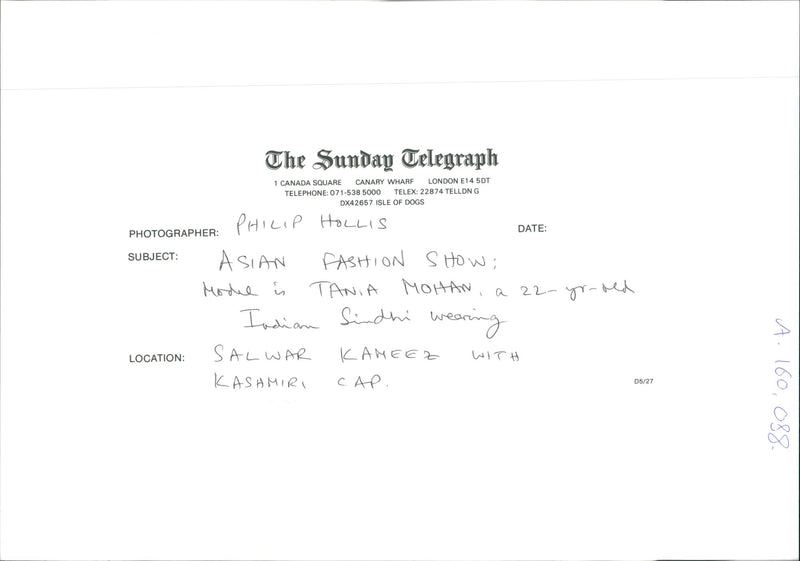 The Sunday Telegraph
1 CANADA SQUARE CANARY WHARF LONDON E14 5DT
TELEPHONE: 071-538 5000 TELEX: 22874 TELLDN G
DX42657 ISLE OF DOGS
PHOTOGRAPHER: PHILIP HOLLIS DATE:
SUBJECT: ASIAN FASHION SHOW;
Model is TANIA MOHAN, a 22-yr-old
Indian Sindhi wearing
LOCATION: SALWAR KAMEEZ WITH
KASHMIRI CAP.
D5/27
A. 160,088.